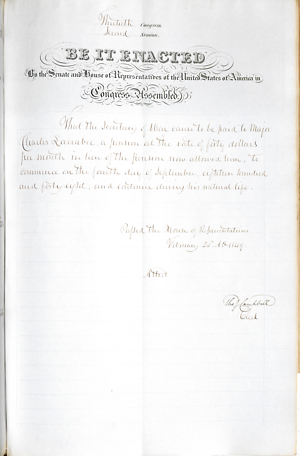 Thirtieth Congress
Second Session
BE IT ENACTED
By the Senate and House of Representatives of the United States of America in
Congress Assembled,
That the Secretary of War cause to be paid to Major
Charles Larrabee a pension at the rate of forty dollars
per month in lieu of the pension now allowed him, to
commence on the fourth day of September, eighteen hundred
and forty eight, and continue during his natural life.
Passed the House of Representatives
February 1849
Attest
Campbell
Clerk